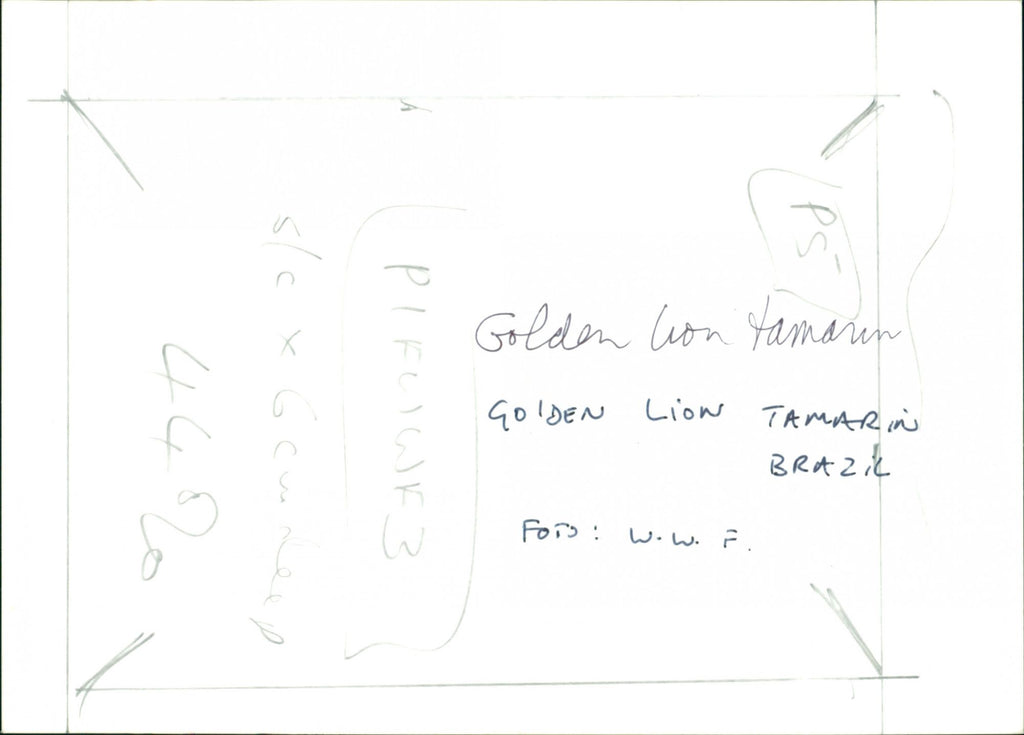 P5
Golden Lion tamarin
GOlDEN LiON TAMARiN
BRAZiL
FOTO: W.W.F.
PIFC/WF3
s/c x 6cm deep
44%